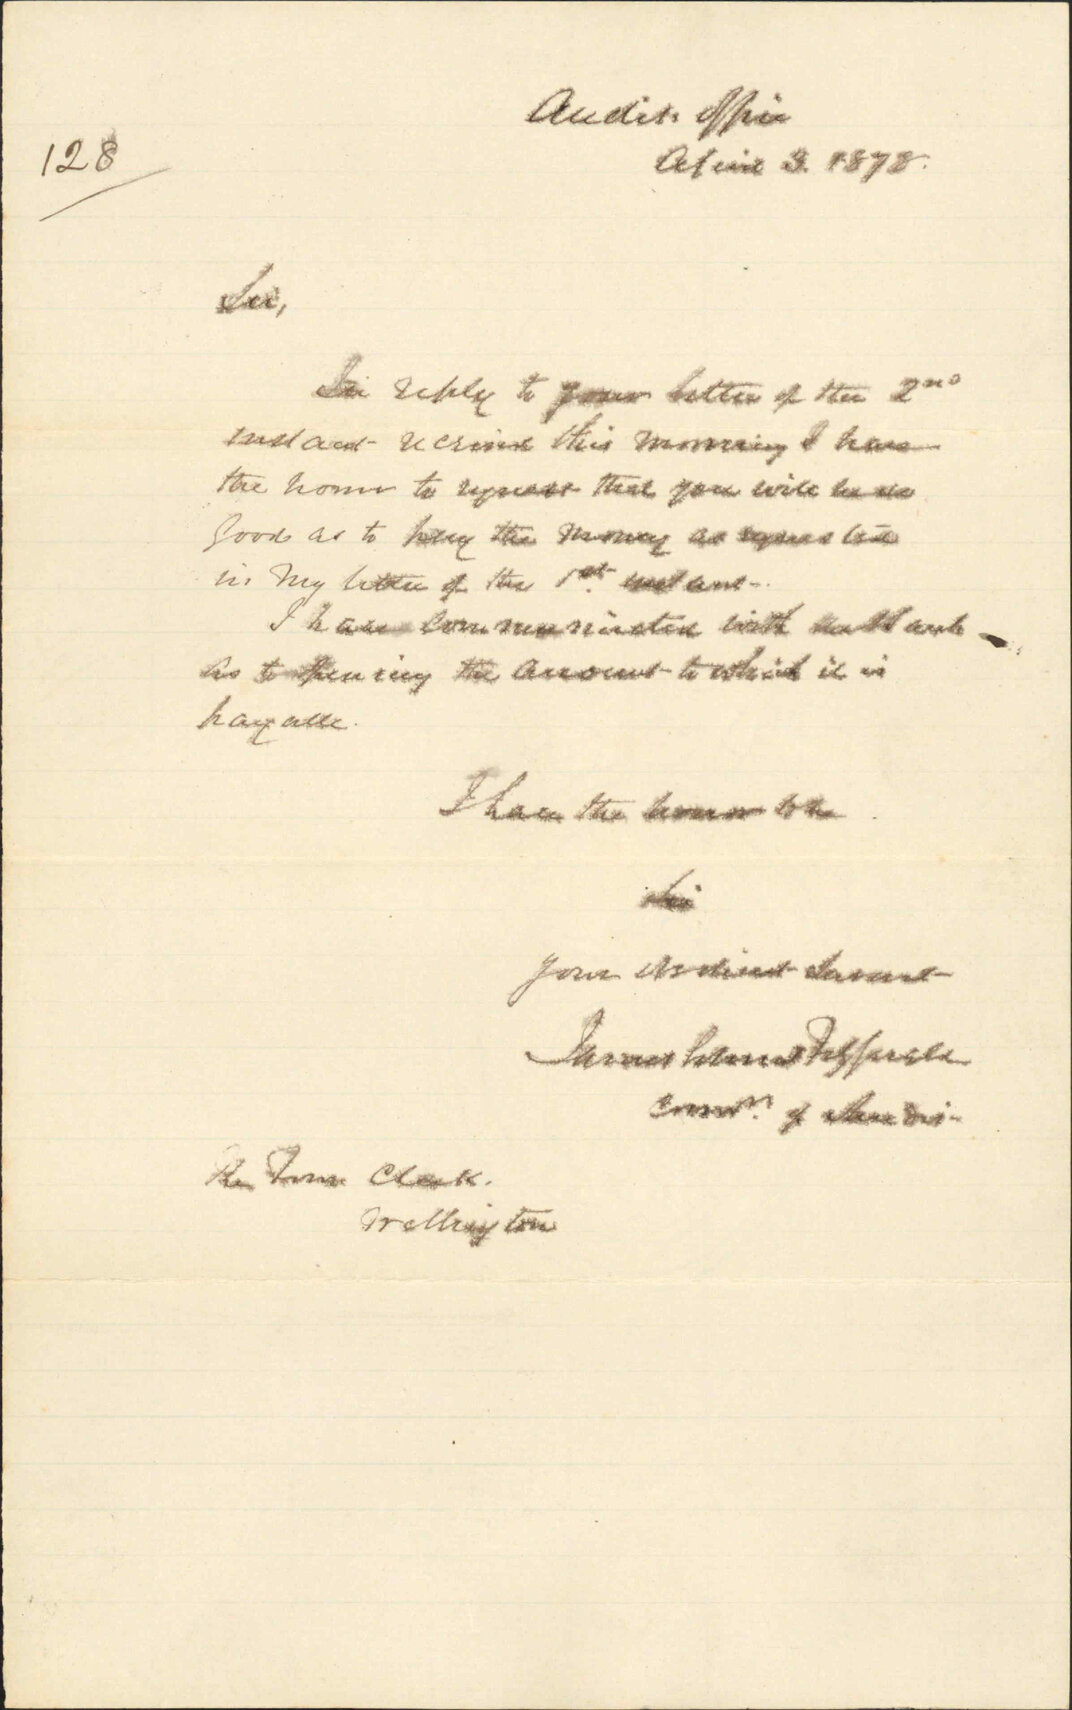 Audit Office
April 3. 1878.
128
Sir,
In reply to your letter of the 2nd
instant received this morning I have
the honor to request that you will be so
good as to pay the money as requested
in my letter of the 1st. instant.
I have communicated with
as to the amount to which it is
payable.
I have the honor to be
Sir
Your obedient Servant
James Edward FitzGerald
Comr. of Audit
The Town Clerk.
Wellington